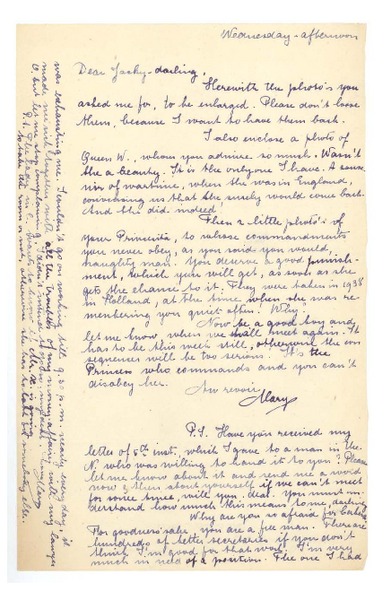 Wednesday - afternoon
Dear Jacky-darling,
Herewith the photo's you
asked me for, to be enlarged. Please don't loose
them, because I want to have them back.
I also enclose a photo of
Queen W., whom you admire so much. Wasn't
she a beauty. It is the only one I have. A souve-
nir of wartime, when she was in England,
convincing us that she surely would come back.
And she did indeed.
Then 2 little photo's of
your Princess, to whose commandments
you never obey, as you said you would,
naughty man. You deserve a good punish-
ment, which you will get, as soon as she
gets the chance to it. They were taken in 1938
in Holland, at the time when she was re-
membering you quiet often. Why?
Now be a good boy and
let me know when we shall meet again. It
has to be this week still, otherwise the con
sequenses will be too serious. It's the
Princess who commands and you can't
disobey her.
Au revoir,
Mary
P.S. Have you received my
letter of 5th inst. which I gave to a man in the
N. who was willing to hand it to you? Please
let me know about it and send me a word
now & then about yourself if we can't meet
for some time, will you, dear. You must un-
derstand how much this means to me darling
Why are you so afraid for
For goodness sake, you are a free man. There are
hundreds of better secretaries if you don't
think I'm good for that work. I'm very
much in need of a position. The one I had
was exhausting me. I couldn't go on working till 9.30 p.m. nearly every day, it
made me ill together with all the troubles of my money affairs with my lawyer
O, but let me stop complaining.
Mary
P.S.